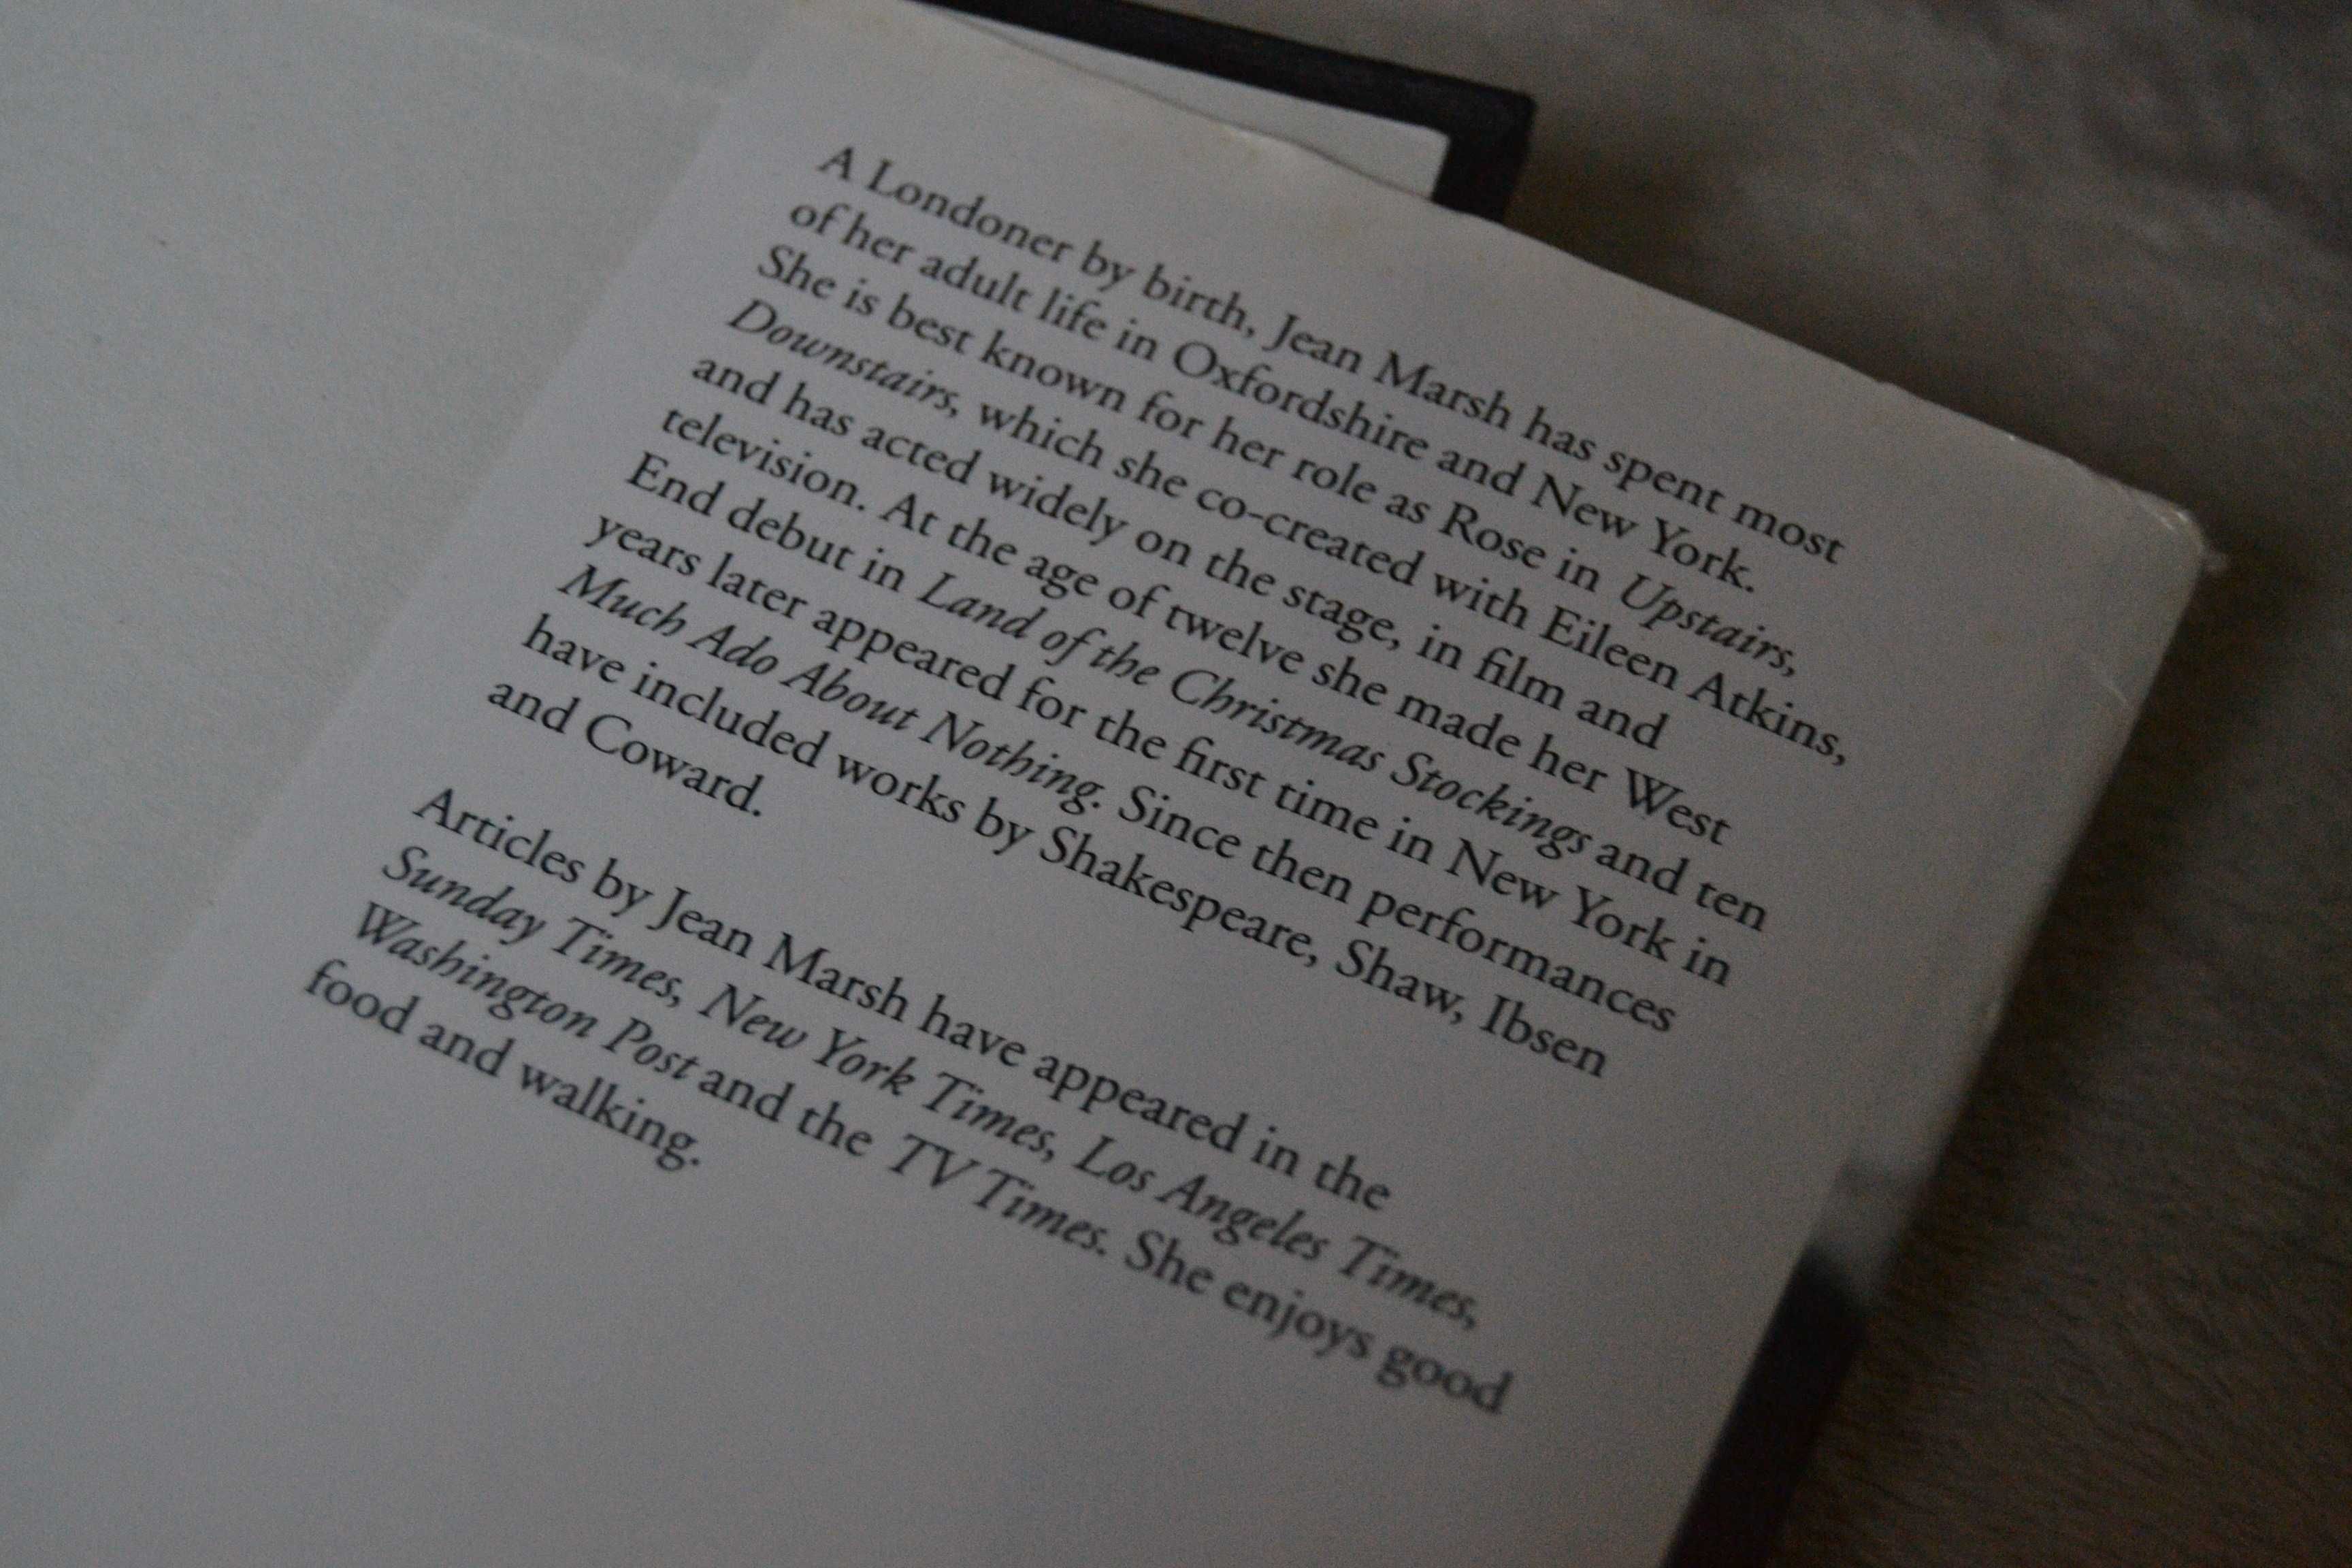 A Londoner by birth, Jean Marsh has spent most
of her adult life in Oxfordshire and New York.
She is best known for her role as Rose in Upstairs,
Downstairs, which she co-created with Eileen Atkins,
and has acted widely on the stage, in film and
television. At the age of twelve she made her West
End debut in Land of the Christmas Stockings and ten
years later appeared for the first time in New York in
Much Ado About Nothing. Since then performances
have included works by Shakespeare, Shaw, Ibsen
and Coward.
Articles by Jean Marsh have appeared in the
Sunday Times, New York Times, Los Angeles Times,
Washington Post and the TV Times. She enjoys good
food and walking.